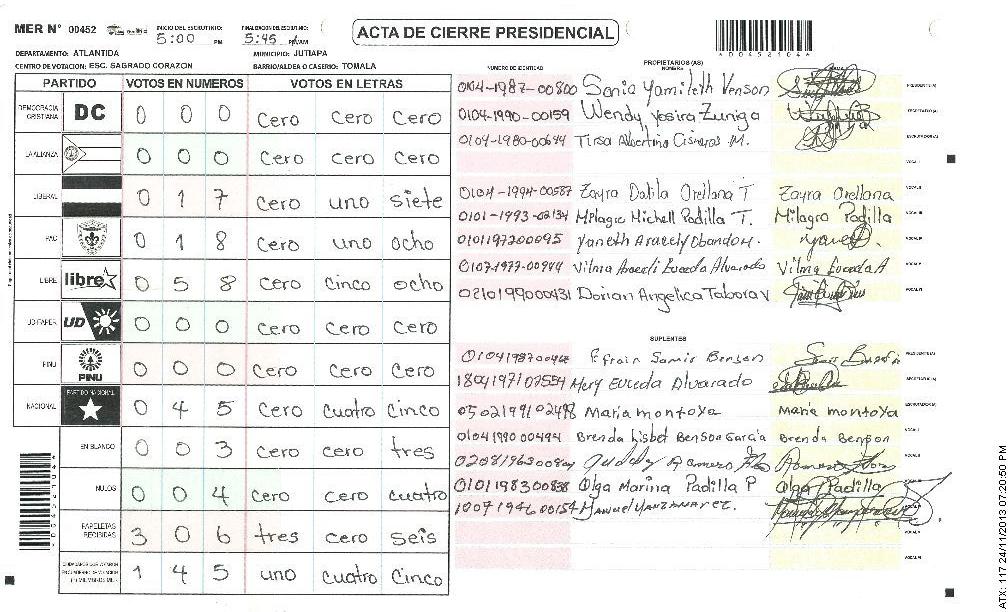 MER N° 00452 INICIO DEL ESCRUTINIO: 5:00 PM FINALIZACION DEL ESCRUTINIO: 5:45 PM/AM
ACTA DE CIERRE PRESIDENCIAL
*00452104*
DEPARTAMENTO: ATLANTIDA MUNICIPIO: JUTIAPA
CENTRO DE VOTACION: ESC. SAGRADO CORAZON BARRIO/ALDEA O CASERIO: TOMALA
PARTIDO VOTOS EN NUMEROS VOTOS EN LETRAS
DEMOCRACIA CRISTIANA DC 0 0 0 cero cero cero
LA ALIANZA 0 0 0 cero cero cero
LIBERAL 0 1 7 cero uno siete
PAC 0 1 8 cero uno ocho
LIBRE libre 0 5 8 cero cinco ocho
UD-FAPER UD 0 0 0 cero cero cero
PINU PINU 0 0 0 cero cero cero
NACIONAL PARTIDO NACIONAL 0 4 5 cero cuatro cinco
EN BLANCO 0 0 3 cero cero tres
NULOS 0 0 4 cero cero cuatro
PAPELETAS RECIBIDAS 3 0 6 tres cero seis
1 4 5 uno cuatro cinco
PROPIETARIOS (AS)
NUMERO DE IDENTIDAD NOMBRE
0104-1987-00800 Sonia Yamileth Venson PRESIDENTE (A)
0104-1990-00159 Wendy Yesira Zuniga SECRETARIO (A)
0104-1980-00644 Tirsa Albertina Cisneros M. ESCRUTADOR (A)
VOCAL I
0104-1994-00587 Zayra Dalila Orellana T Zayra Orellana VOCAL II
0101-1993-02134 Milagro Michell Padilla T. Milagro Padilla VOCAL III
0101197200095 Yaneth Aracely Obando M. VOCAL IV
0107-1977-00944 Vilma Araceli Euceda Alvarado Vilma Euceda A VOCAL V
0210199000431 Dorian Angelica Tabora V VOCAL VI
SUPLENTES
Efrain Samir Benson PRESIDENTE (A)
1804197102554 Mery Euceda Alvarado SECRETARIO (A)
0502199102498 Maria montoya Maria montoya ESCRUTADOR (A)
0104199000494 Brenda Lisbet Benson Garcia Brenda Benson VOCAL I
Romero VOCAL II
0101198300838 Olga Marina Padilla P Olga Padilla
Manuel Manzanarez.
VOCAL V
VOCAL VI
ATX: 117 24/11/2013 07:20:50 PM